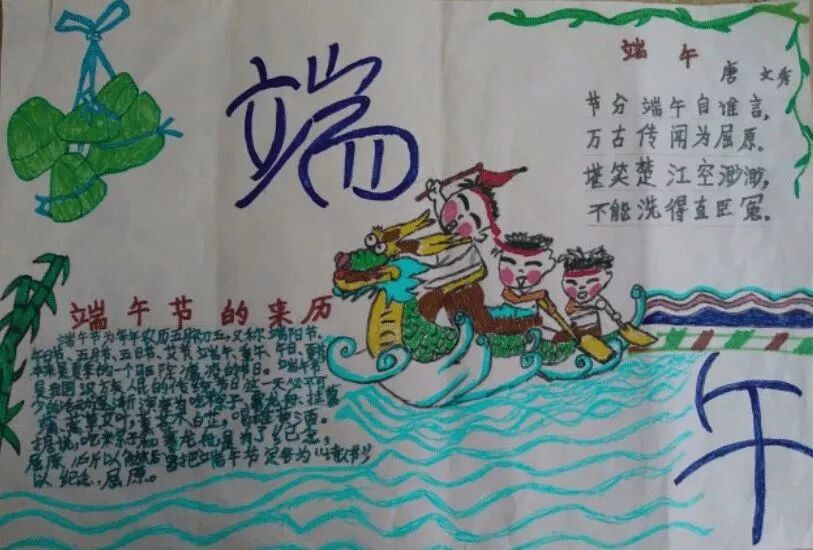 端午
端 午
唐 文秀
节分端午自谁言,
万古传闻为屈原。
堪笑楚江空渺渺,
不能洗得直臣冤。
端午节的来历
端午节为每年农历五月初五,又称端阳节、
午日节、五月节、五日节、艾节、端午、重午、午日、夏节
本来是夏季的一个驱除瘟疫的节日。端午节
是我国汉族人民的传统节日这一天必不可
少的活动逐渐演变为吃粽子、赛龙舟、挂菖
蒲、蒿草艾叶,薰苍术白芷,喝雄黄酒。
据说,吃粽子和赛龙舟,是为了纪念
屈原,所以解放后曾把端午节定名为“诗人节”
以纪念屈原。